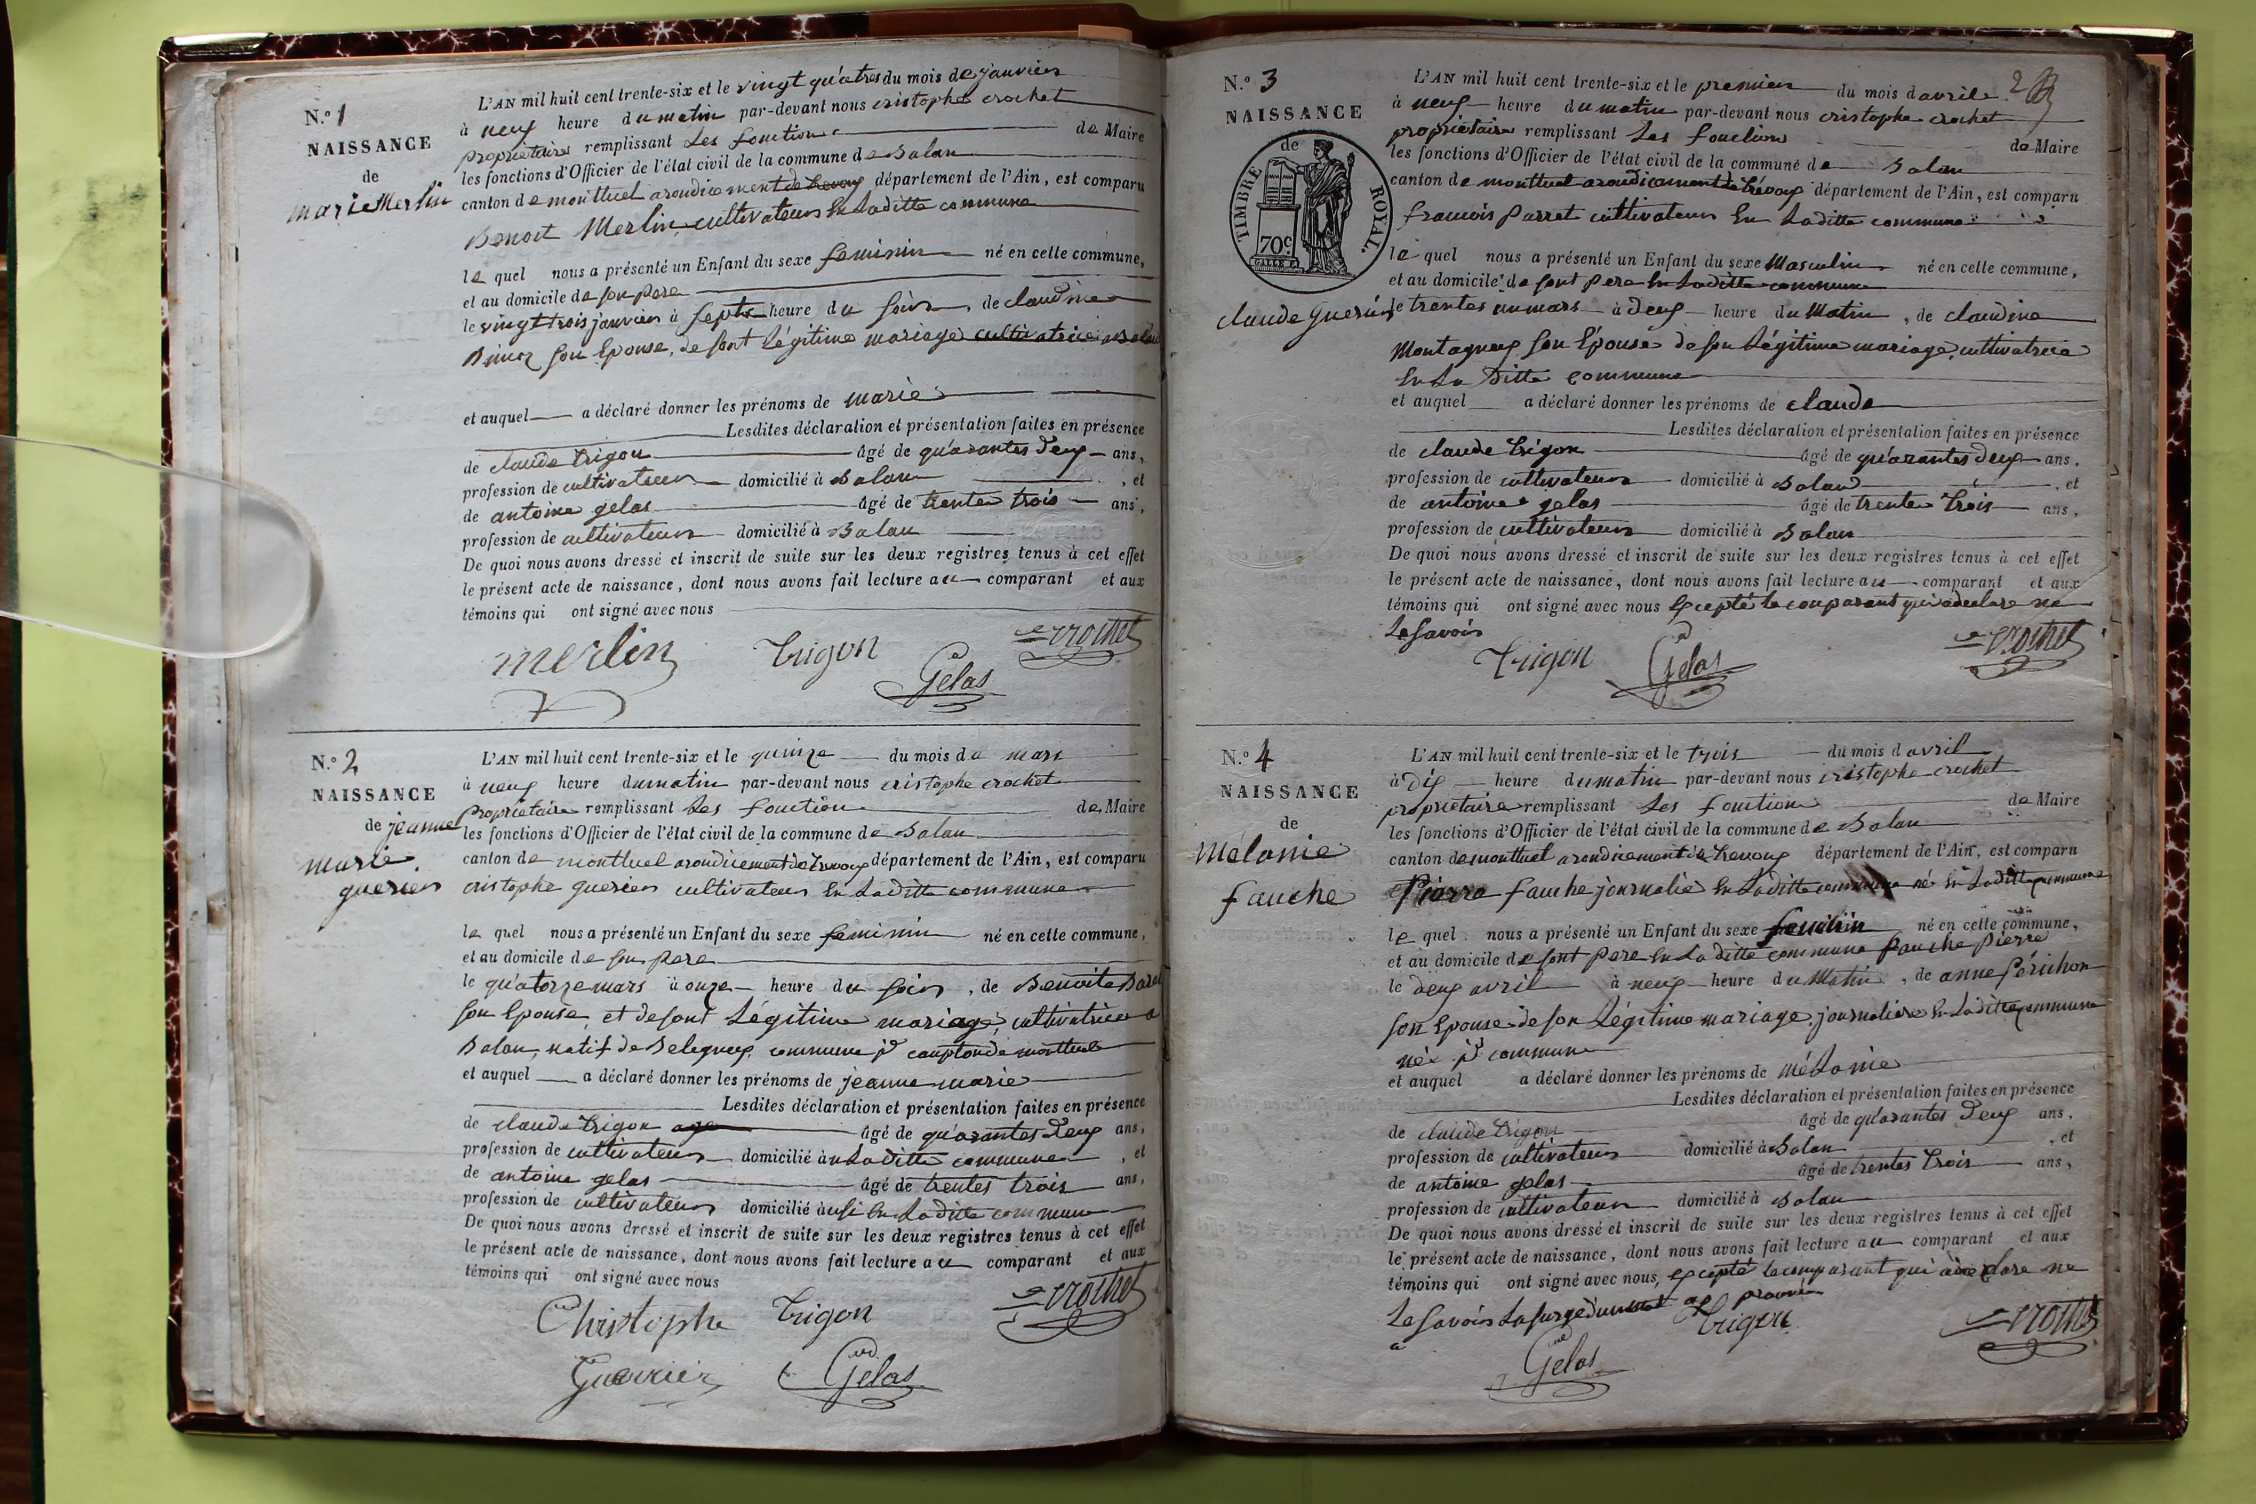 N.º 1
NAISSANCE
de
marie Merlin
L'AN mil huit cent trente-six et le vingt qu'atres du mois de janvier
à neuf heure du matin par-devant nous cristophe crochet
propriétaire remplissant Les fonction de Maire
les fonctions d'Officier de l'état civil de la commune de Balan
canton de montluel arondicement de trevoux département de l'Ain, est comparu
Benoit Merlin cultivateur En Laditte commune
le quel nous a présenté un Enfant du sexe feminin né en cette commune,
et au domicile de son pere
le vingt trois janvier à septe heure du soir, de claudine
son Epouse, de sont Légitime mariage cultivatrice a Balan
et auquel a déclaré donner les prénoms de marie
Lesdites déclaration et présentation faites en présence
de claude trigon âgé de qu'arantes deux ans,
profession de cultivateur domicilié à Balan , et
de antoine gelas âgé de trente trois ans,
profession de cultivateur domicilié à Balan
De quoi nous avons dressé et inscrit de suite sur les deux registres tenus à cet effet
le présent acte de naissance, dont nous avons fait lecture au comparant et aux
témoins qui ont signé avec nous
merlin trigon crochet
Gelas
N.º 2
NAISSANCE
de jeanne
marie
guerier
L'AN mil huit cent trente-six et le quinze du mois de mars
à neuf heure du matin par-devant nous cristophe crochet
propriétaire remplissant Les fonction de Maire
les fonctions d'Officier de l'état civil de la commune de Balan
canton de montluel arondicement de trevoux département de l'Ain, est comparu
cristophe guerier cultivateur En Laditte commune
le quel nous a présenté un Enfant du sexe feminin né en cette commune,
et au domicile de son pere
le qu'atorze mars à onze heure du soir, de Benoite
son Epouse et de sont Légitime mariage, cultivatrice a
Balan, natif de Beligneux commune canton de montluel
et auquel a déclaré donner les prénoms de jeanne marie
Lesdites déclaration et présentation faites en présence
de claude trigon âgé de qu'arantes deux ans,
profession de cultivateur domicilié à Laditte commune , et
de antoine gelas âgé de trentes trois ans,
profession de cultivateur domicilié à En Laditte commune
De quoi nous avons dressé et inscrit de suite sur les deux registres tenus à cet effet
le présent acte de naissance, dont nous avons fait lecture au comparant et aux
témoins qui ont signé avec nous
Christophe trigon crochet
Guerrier Gelas
N.º 3
NAISSANCE
de
TIMBRE ROYAL.
70c
claude guerin
L'AN mil huit cent trente-six et le premier du mois d avrile
à neuf heure du matin par-devant nous cristophe crochet
propriétaire remplissant Les fonction de Maire
les fonctions d'Officier de l'état civil de la commune de Balan
canton de montluel arondicement de trévoux département de l'Ain, est comparu
francois parret cultivateur En Laditte commune
le quel nous a présenté un Enfant du sexe Masculin né en cette commune,
et au domicile de sont pere En Laditte commune
le trentes un mars à deux heure du Matin, de claudine
Montagneux son Epouse de son Légitime mariage, cultivatrice
En La Ditte commune
et auquel a déclaré donner les prénoms de claude
Lesdites déclaration et présentation faites en présence
de claude trigon âgé de qu'arantes deux ans,
profession de cultivateur domicilié à Balan , et
de antoine gelas âgé de trente trois ans,
profession de cultivateur domicilié à Balan
De quoi nous avons dressé et inscrit de suite sur les deux registres tenus à cet effet
le présent acte de naissance, dont nous avons fait lecture au comparant et aux
témoins qui ont signé avec nous Excepté le comparant qui a declare ne
Le savoir
trigon Gelas crochet
N.º 4
NAISSANCE
de
Mélanie
fauche
L'AN mil huit cent trente-six et le trois du mois d avril
à dix heure du matin par-devant nous cristophe crochet
propriétaire remplissant Les fonction de Maire
les fonctions d'Officier de l'état civil de la commune de Balan
canton de montluel arondicement de trevoux département de l'Ain, est comparu
Pierre fauche journalié En Laditte commune né En Laditte commune
le quel nous a présenté un Enfant du sexe feminin né en cette commune,
et au domicile de sont pere En La ditte commune fauche pierre
le deux avril à neuf heure du Matin, de anne périchon
son Epouse de son Légitime mariage, journaliere En Laditte commune
née commune
et auquel a déclaré donner les prénoms de méLanie
Lesdites déclaration et présentation faites en présence
de claude trigon âgé de qu'arantes deux ans,
profession de cultivateur domicilié à Balan , et
de antoine gelas âgé de trentes trois ans,
profession de cultivateur domicilié à Balan
De quoi nous avons dressé et inscrit de suite sur les deux registres tenus à cet effet
le présent acte de naissance, dont nous avons fait lecture au comparant et aux
témoins qui ont signé avec nous, excepté le comparant qui a declare ne
Le savoir
trigon crochet
Gelas